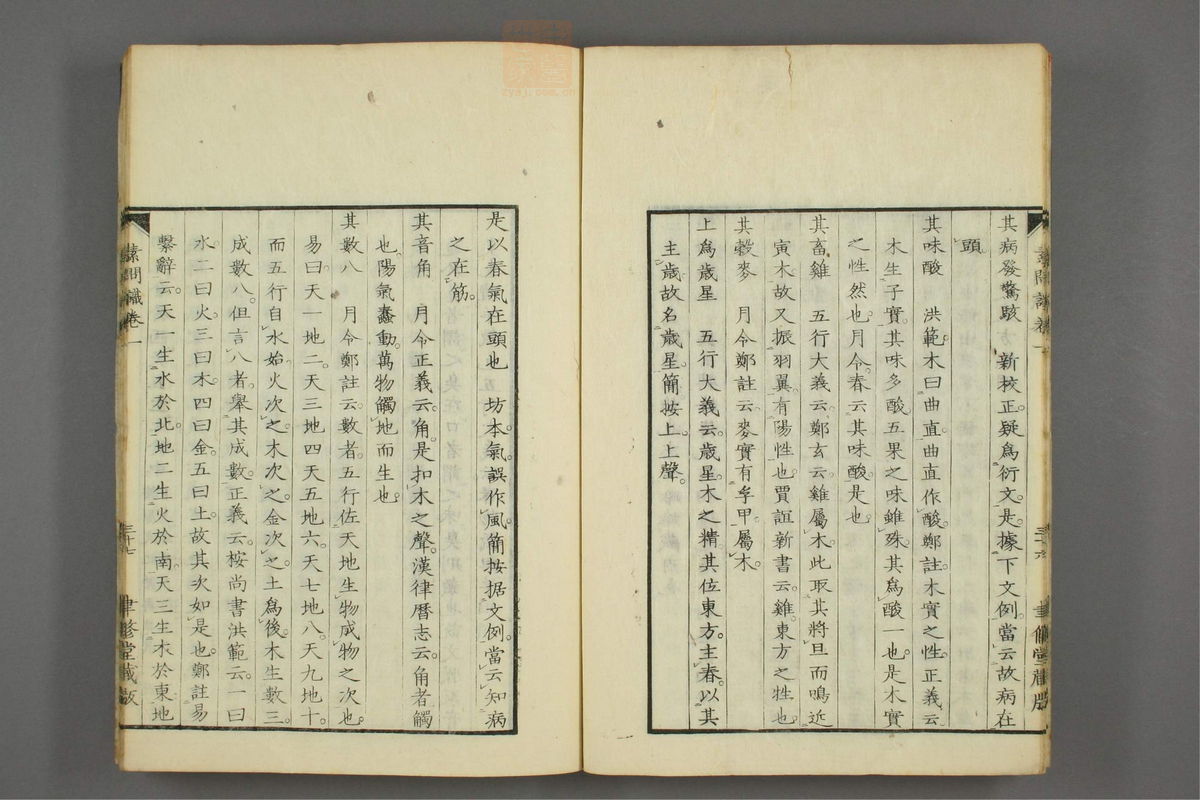 其病發驚駭　新校正疑為衍文是據下文例當云故病在
頭
其味酸　洪範木曰曲直曲直作酸鄭註木實之性正義云
木生子實其味多酸五果之味雖殊其為酸一也是木實
之性然也月令春云其味酸是也
其畜雞　五行大義云鄭玄云雞屬木此取其將旦而鳴近
寅木故又振羽翼有陽性也賈誼新書云雞東方之牲也
其穀麥　月令鄭註云麥實有孚甲屬木
上為歲星　五行大義云歲星木之精其位東方主春以其
主歲故名歲星簡按上上聲
是以春氣在頭也　坊本氣誤作風簡按据文例當云知病
之在筋
其音角　月令正義云角是扣木之聲漢律曆志云角者觸
也陽氣蠢動萬物觸地而生也
其數八　月令鄭註云數者五行佐天地生物成物之次也
易曰天一地二天三地四天五地六天七地八天九地十
而五行自水始火次之木次之金次之土為後木生數三
成數八但言八者舉其成數正義云桉尚書洪範云一曰
水二曰火三曰木四曰金五曰土故其次如是也鄭註易
繫辭云天一生水於北地二生火於南天三生木於東地
素問識卷一
三十七
聿修堂藏版